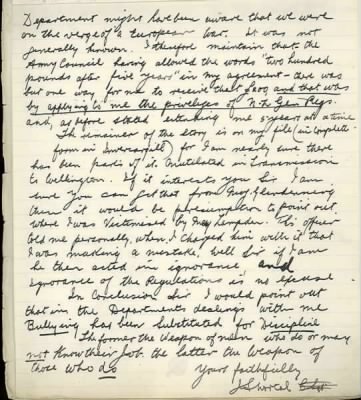 Department might have been aware that we were
on the verge of a European War. It was not
generally known. I therefore maintain that the
Army Council having allowed the words "two hundred
pounds after five years" in my agreement - there was
but one way for me to receive that £200 and that was
by applying to me the privileges of N.Z. Gen Regs.
and, as before stated extending me 5 years at a time
The remainer of the story is on my file (in complete
form in Invercargill) for I am nearly sure there
has been parts of it mutilated in transmission
to Wellington. If it interests you Sir I am
sure you can get that from Maj. Glendenning
then it would be presumption to point out
where I was Victimised by Maj. This officer
told me personally, when I charged him with it that
I was making a mistake, well Sir if I am
he then acted in ignorance and
ignorance of the Regulations is no excuse
In Conclusion Sir I would point out
that in the Departments dealings with me
Bullying has been substituted for Discipline
The former the Weapon of men who do or may
not Know their Job. the latter the Weapon of
those who do
Yours faithfully